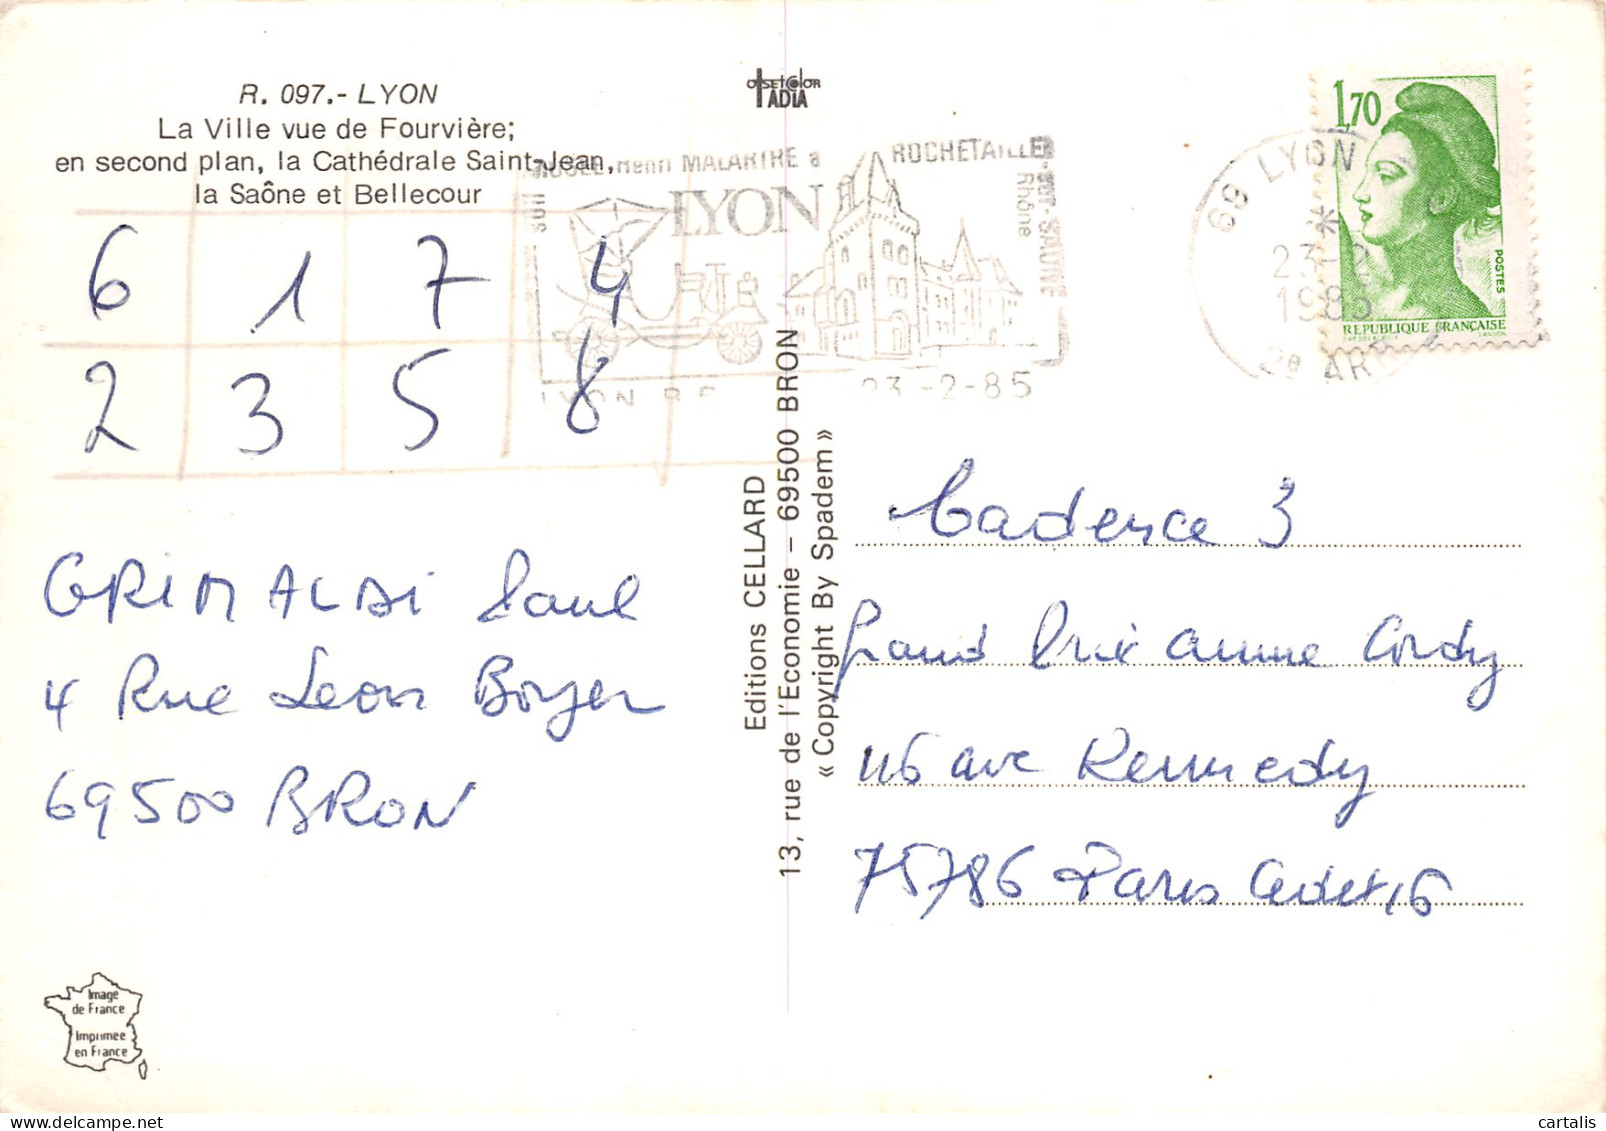 R. 097.- LYON
La Ville vue de Fourvière;
en second plan, la Cathédrale Saint-Jean,
la Saône et Bellecour
OFFSETCOLOR
IADIA
6 1 7 4
2 3 5 8
GRIMALDI Paul
4 Rue Leon Boyer
69500 BRON
Image
de France
Imprimée
en France
Editions CELLARD
13, rue de l'Economie – 69500 BRON
« Copyright By Spadem »
Henri MALARTRE à ROCHETAILLEE-SUR-SAONE
Rhône
LYON
23-2-85
69 LYON
23-2
1985
2e ARR
1,70
POSTES
REPUBLIQUE FRANÇAISE
GANDON
Cadence 3
Grand Prix Annie Cordy
116 ave Kennedy
75786 Paris Cedex 16
cartalis